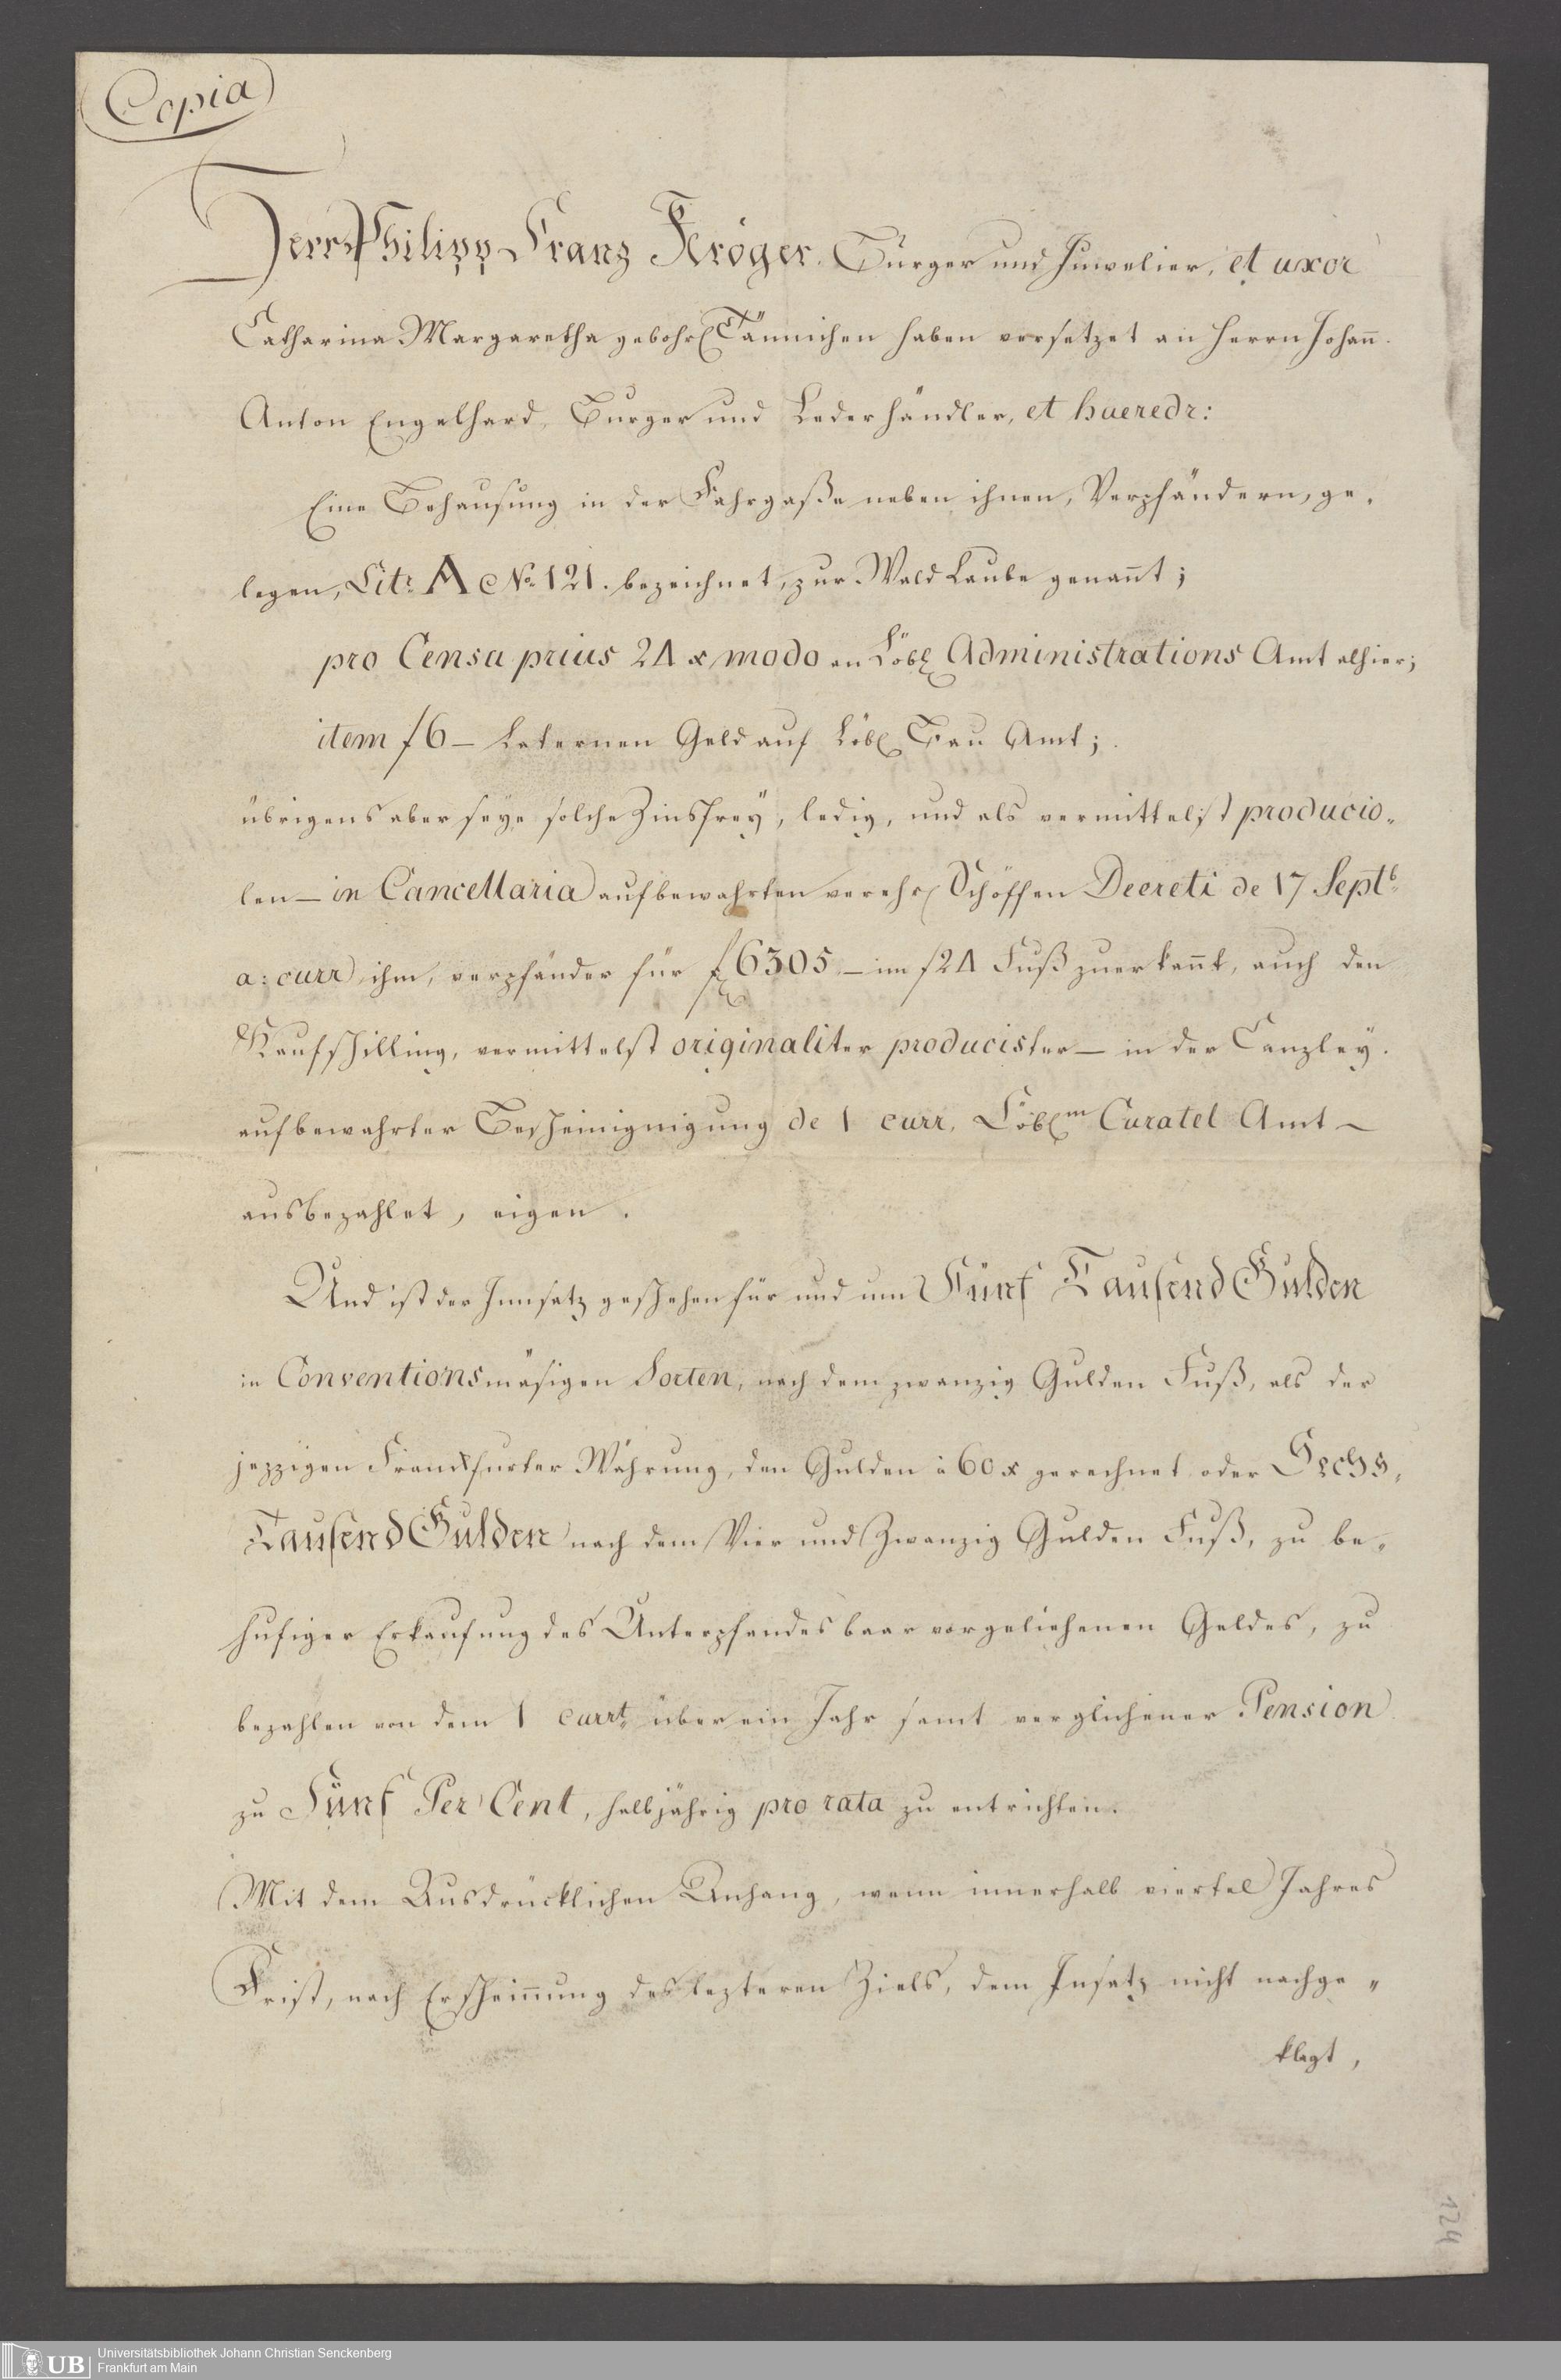 Copia
Herr Philipp Franz Kröger, Burger und Juwelier, et uxor
Catharina Margaretha gebohr. Tännichen haben versetzet an Herrn Johañ
Anton Engelhard, Burger und Lederhändler, et haeredr:
Eine Behausung in der Fahrgaße neben ihnen, Verpfändern, ge-
legen, Litr: A No. 121. bezeichnet, zur Wald Laube genañt;
pro Censu prius 24 x modo an Löbl. Administrations Amt alhier;
item f 6 – Laternen Geld auf Löbl. Bau Amt;
übrigens aber seye solche Zinsfreÿ, ledig, und als vermittelst producir-
ten – in Cancellaria aufbewahrten verehrl. Schöffen Decreti de 17 Septb.
a: curr. ihm, verpfänder für f 6305 – im f 24 Fuß zuerkañt, auch den
Kaufschilling, vermittelst originaliter producirter – in der Canzleÿ
aufbewahrter Bescheinignigung de 1 curr. Löbl.m Curatel Amt –
ausbezahlet, eigen.
Und ist der Innsatz geschehen für und um Fünf Tausend Gulden
in Conventionsmäsigen Sorten, nach dem zwanzig Gulden Fuß, als der
jezzigen Franckfurter Währung, den Gulden à 60 x gerechnet oder Sechs-
Tausend Gulden nach dem Vier und Zwanzig Gulden Fuß, zu be-
hufiger Erkaufung des Unterpfandes baar vorgeliehenen Geldes, zu
bezahlen von dem 1 currt. über ein Jahr samt verglichener Pension
zu Fünf Per Cent, halbjährig pro rata zu entrichten.
Mit dem Ausdrücklichen Anhang, wenn innerhalb viertel Jahres
Frist, nach Erscheiñung des lezteren Ziels, dem Insatz nicht nachge-
klagt,
124
UB Universitätsbibliothek Johann Christian Senckenberg
Frankfurt am Main